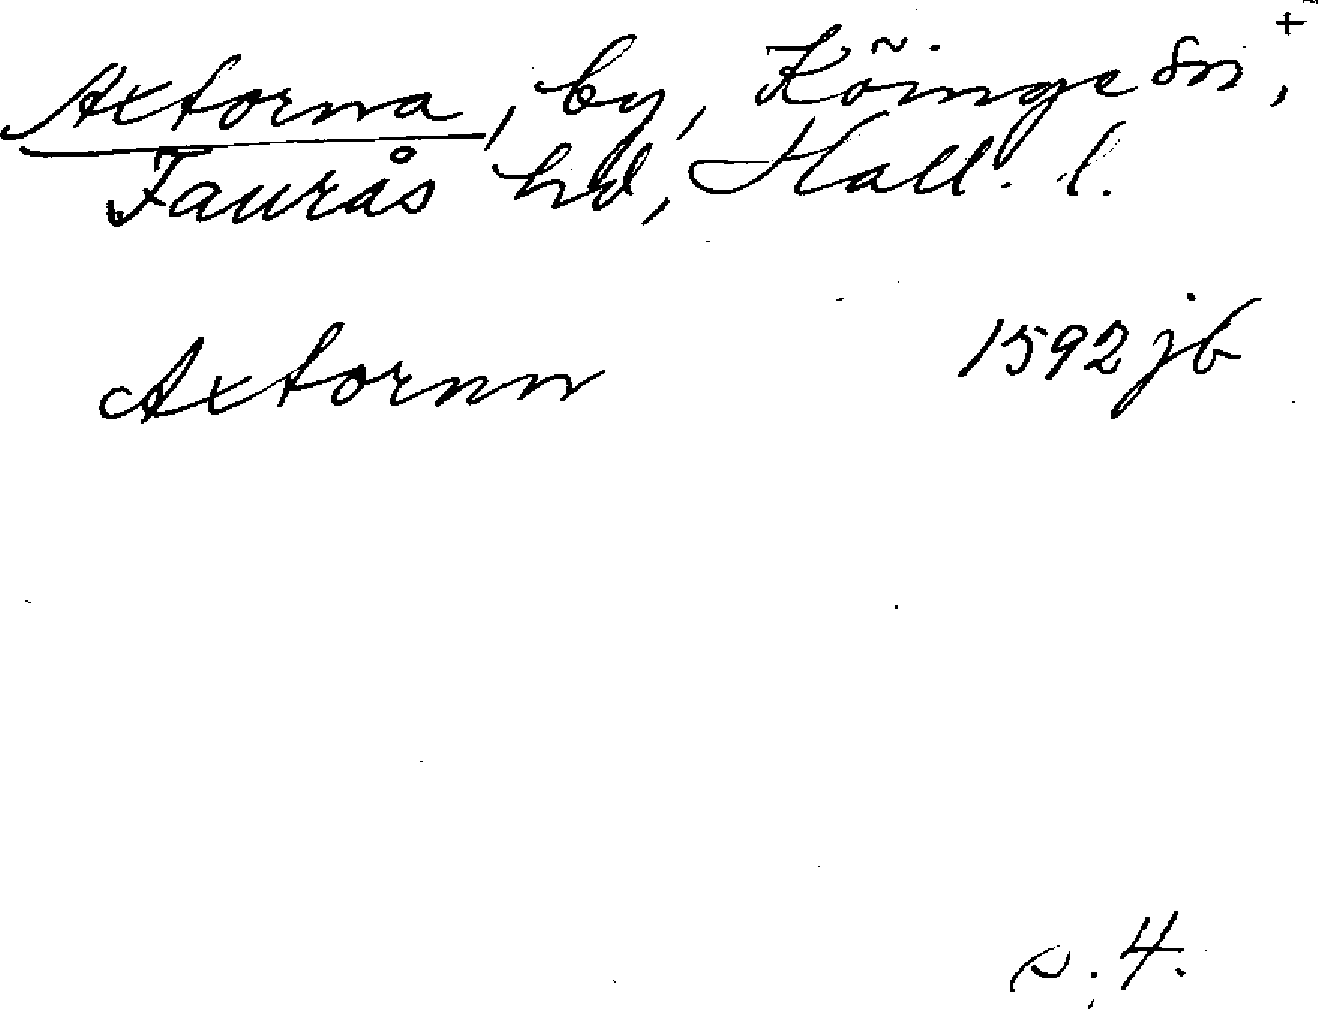 +
Axtorna, by, Köinge sn,
Faurås hd, Hall. l.
Axtornn 1592 jb
s. 4.